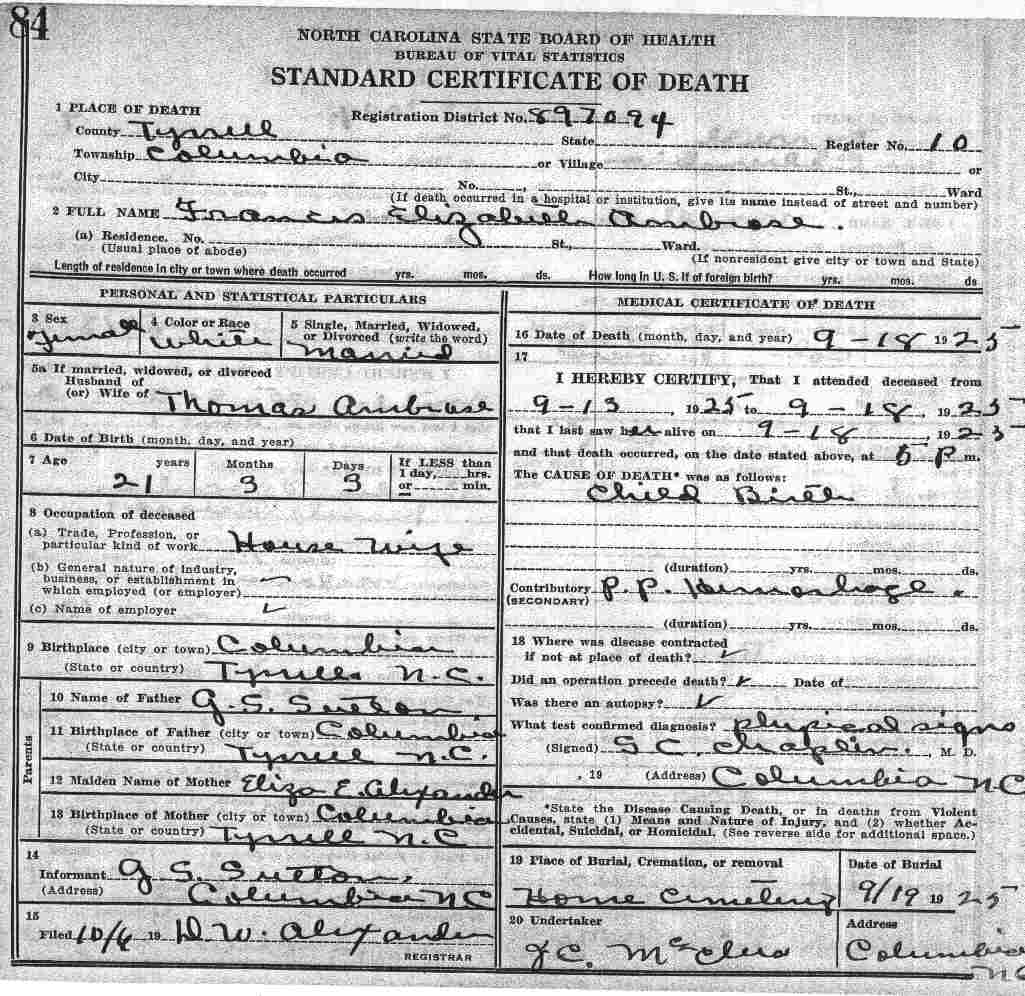 84
NORTH CAROLINA STATE BOARD OF HEALTH
BUREAU OF VITAL STATISTICS
STANDARD CERTIFICATE OF DEATH
1 PLACE OF DEATH
Registration District No. 897094
County Tyrrell State Register No. 10
Township Columbia or Village or
City No. , St., Ward
(If death occurred in a hospital or institution, give its name instead of street and number)
2 FULL NAME Francis Elizabeth Ambrose.
(a) Residence. No. St., Ward.
(Usual place of abode) (If nonresident give city or town and State)
Length of residence in city or town where death occurred yrs. mos. ds. How long in U. S. if of foreign birth? yrs. mos. ds
PERSONAL AND STATISTICAL PARTICULARS
3 Sex
Female
4 Color or Race
White
5 Single, Married, Widowed,
or Divorced (write the word)
Married
5a If married, widowed, or divorced
Husband of
(or) Wife of Thomas Ambrose
6 Date of Birth (month, day, and year)
7 Age years Months Days If LESS than
1 day, hrs.
21 3 3 or min.
8 Occupation of deceased
(a) Trade, Profession, or
particular kind of work House Wife
(b) General nature of industry,
business, or establishment in
which employed (or employer)
(c) Name of employer
9 Birthplace (city or town) Columbia
(State or country) Tyrrell N.C.
Parents
10 Name of Father G. S. Sutton
11 Birthplace of Father (city or town) Columbia
(State or country) Tyrrell N.C.
12 Maiden Name of Mother Eliza E. Alexander
13 Birthplace of Mother (city or town) Columbia
(State or country) Tyrrell N.C
14
Informant G S. Sutton,
(Address) Columbia NC
15
Filed 10/6 19 D. W. Alexander
REGISTRAR
MEDICAL CERTIFICATE OF DEATH
16 Date of Death (month, day, and year) 9-18 1925
17
I HEREBY CERTIFY, That I attended deceased from
9-13, 1925 to 9-18, 1925
that I last saw her alive on 9-18, 1925
and that death occurred, on the date stated above, at P m.
The CAUSE OF DEATH* was as follows:
Child Birth
(duration) yrs. mos. ds.
Contributory P. P. Hemorhage.
(SECONDARY)
(duration) yrs. mos. ds.
18 Where was disease contracted
if not at place of death?
Did an operation precede death? Date of
Was there an autopsy?
What test confirmed diagnosis? physical signs
(Signed) S C. Chaplin. , M. D.
, 19 (Address) Columbia NC
*State the Disease Causing Death, or in deaths from Violent
Causes, state (1) Means and Nature of Injury, and (2) whether Ac-
cidental, Suicidal, or Homicidal. (See reverse side for additional space.)
19 Place of Burial, Cremation, or removal
Home Cemetery
Date of Burial
9/19 1925
20 Undertaker
J C.
Address
Columbia
NC